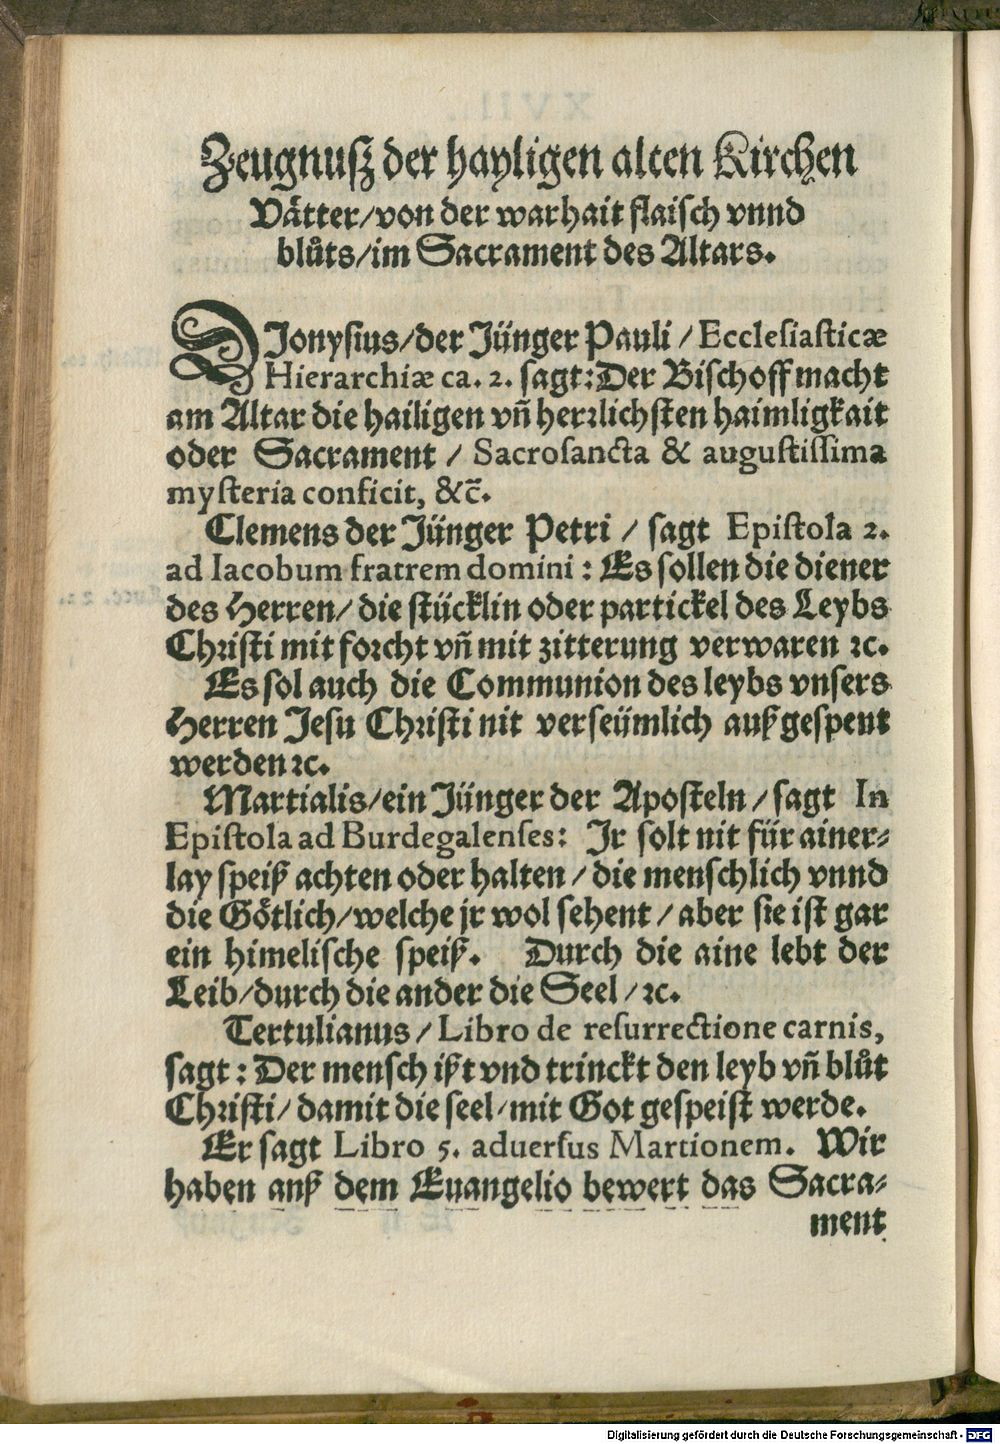 Zeugnusz der hayligen alten Kirchen
Vaͤtter/von der warhait flaisch vnnd
bluͦts/im Sacrament des Altars.
DIonysius/der Jünger Pauli / Ecclesiasticæ
Hierarchiæ ca. 2. sagt: Der Bischoff macht
am Altar die hailigen vñ herꝛlichsten haimligkait
oder Sacrament / Sacrosancta & augustissima
mysteria conficit, &c̃.
Clemens der Jünger Petri / sagt Epistola 2.
ad Iacobum fratrem domini : Es sollen die diener
des Herren/ die stücklin oder partickel des Leybs
Chꝛisti mit foꝛcht vñ mit zitterung verwaren ꝛc.
Es sol auch die Communion des leybs vnsers
Herren Jesu Chꝛisti nit verseümlich außgespent
werden ꝛc.
Martialis/ein Jünger der Aposteln / sagt In
Epistola ad Burdegalenses: Jr solt nit für ainer-
lay speiß achten oder halten / die menschlich vnnd
die Goͤtlich/welche jr wol sehent / aber sie ist gar
ein himelische speiß. Durch die aine lebt der
Leib/durch die ander die Seel /ꝛc.
Tertulianus / Libro de resurrectione carnis,
sagt : Der mensch ißt vnd trinckt den leyb vñ bluͦt
Chꝛisti/ damit die seel/mit Got gespeist werde.
Er sagt Libro 5. aduersus Martionem. Wir
haben anß dem Euangelio bewert das Sacra-
ment
Digitalisierung gefördert durch die Deutsche Forschungsgemeinschaft - DFG